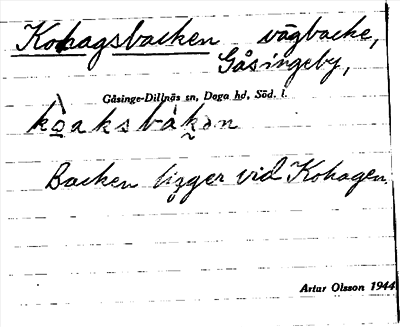 Kohagsbacken vägbacke,
Gåsingeby,
Gåsinge-Dillnäs sn, Daga hd, Söd. l.
Backen ligger vid Kohagen.
Artur Olsson 1944